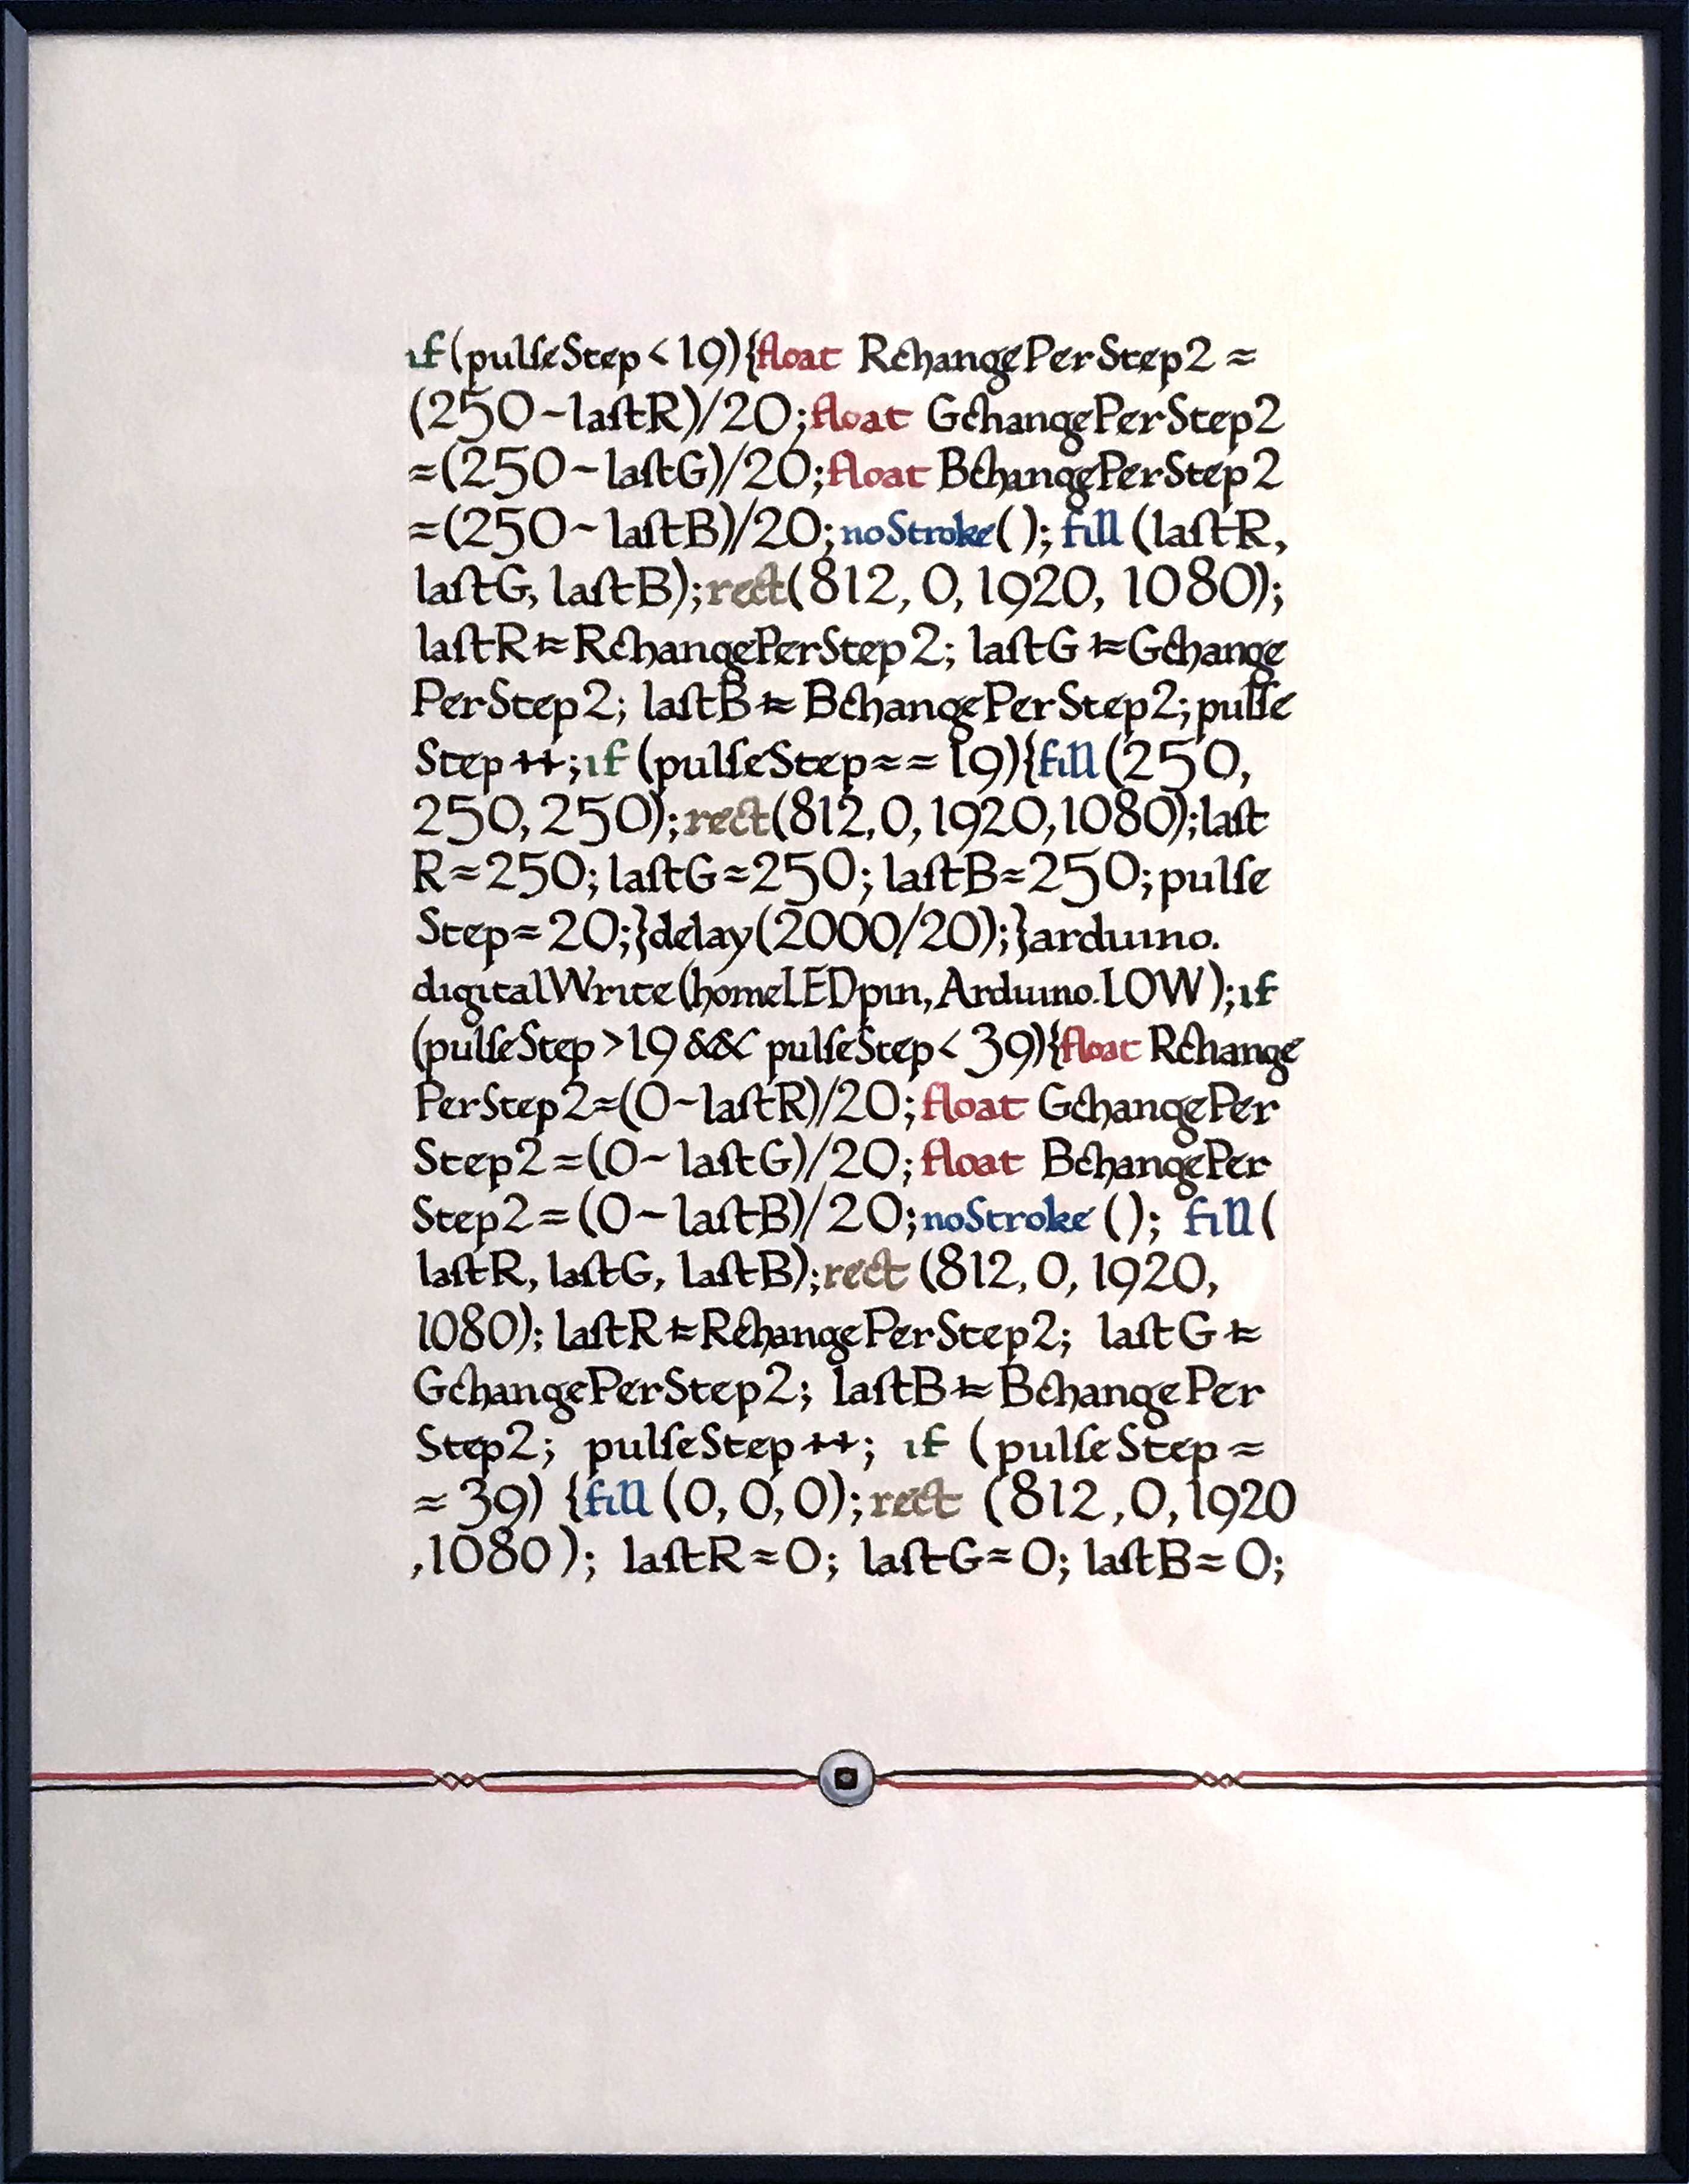 if(pulſeStep<19){float RchangePerStep2=
(250-laſtR)/20;float GchangePerStep2
=(250-laſtG)/20;float BchangePerStep2
=(250-laſtB)/20;noStroke();fill(laſtR,
laſtG, laſtB);rect(812, 0, 1920, 1080);
laſtR+=RchangePerStep2; laſtG+=Gchange
PerStep2; laſtB+=BchangePerStep2;pulſe
Step++;if(pulſeStep==19){fill(250,
250,250);rect(812,0,1920,1080);laſt
R=250;laſtG=250;laſtB=250;pulſe
Step=20;}delay(2000/20);}arduino.
digitalWrite(homeLEDpin,Arduino.LOW);if
(pulſeStep>19&&pulſeStep<39){float Rchange
PerStep2=(0-laſtR)/20;float GchangePer
Step2=(0-laſtG)/20;float BchangePer
Step2=(0-laſtB)/20;noStroke(); fill(
laſtR, laſtG, laſtB);rect(812, 0, 1920,
1080); laſtR+=RchangePerStep2; laſtG+=
GchangePerStep2; laſtB+=BchangePer
Step2; pulſeStep++; if (pulſeStep=
=39) {fill(0, 0, 0);rect (812,0,1920
,1080); laſtR=0; laſtG=0; laſtB=0;